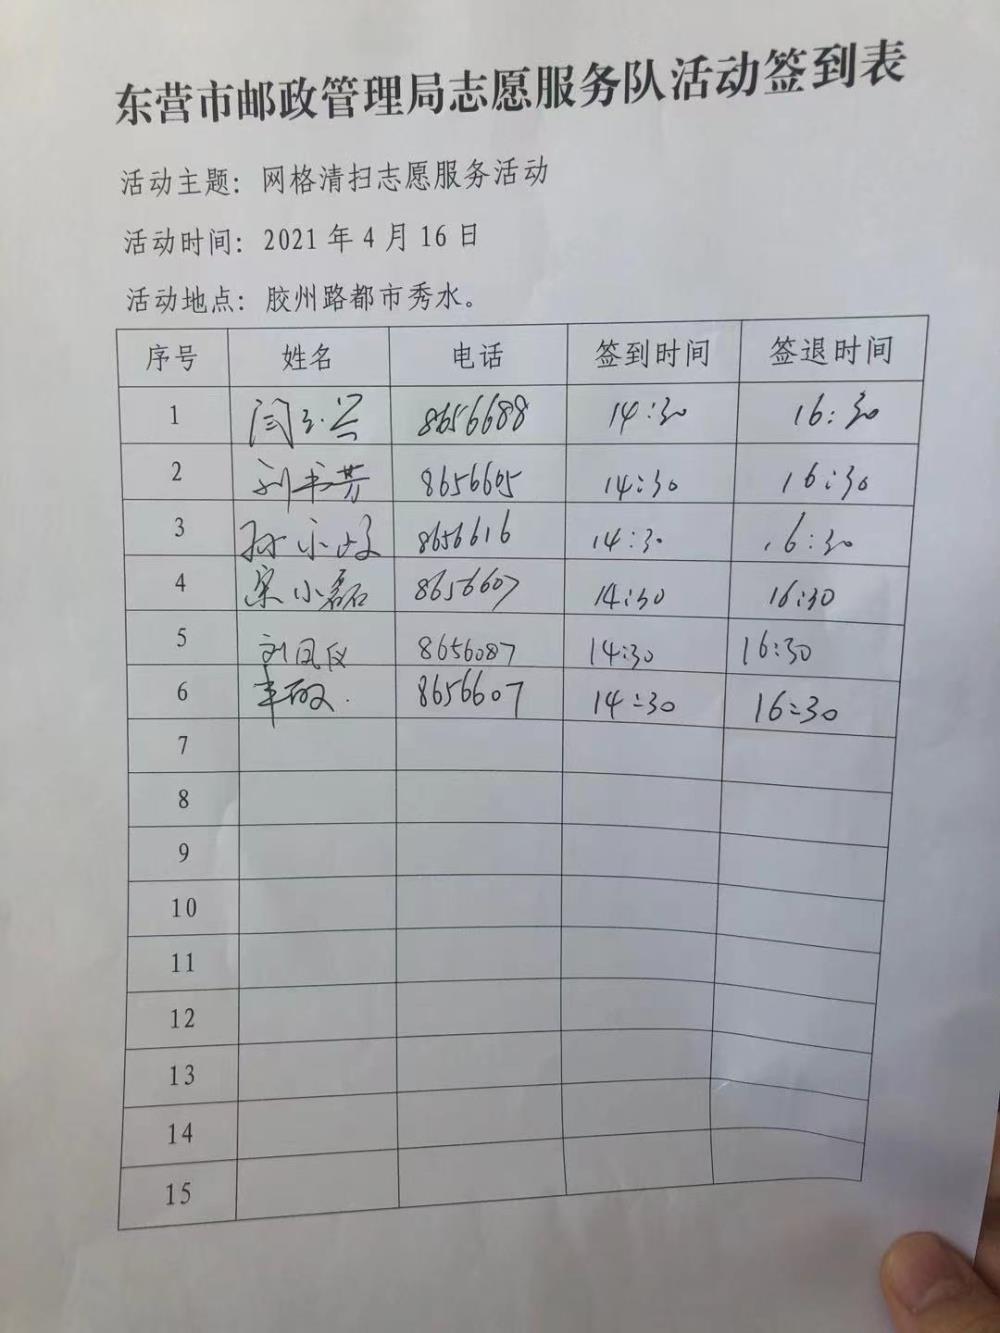 东营市邮政管理局志愿服务队活动签到表
活动主题：网格清扫志愿服务活动
活动时间：2021年4月16日
活动地点：胶州路都市秀水。
序号 姓名 电话 签到时间 签退时间
1 8656688 14:30 16:30
2 刘书芳 8656605 14:30 16:30
3 孙小 8656616 14:30 16:30
4 宋小磊 8656607 14:30 16:30
5 刘凤仪 8656087 14:30 16:30
6 8656607 14:30 16:30
7
8
9
10
11
12
13
14
15